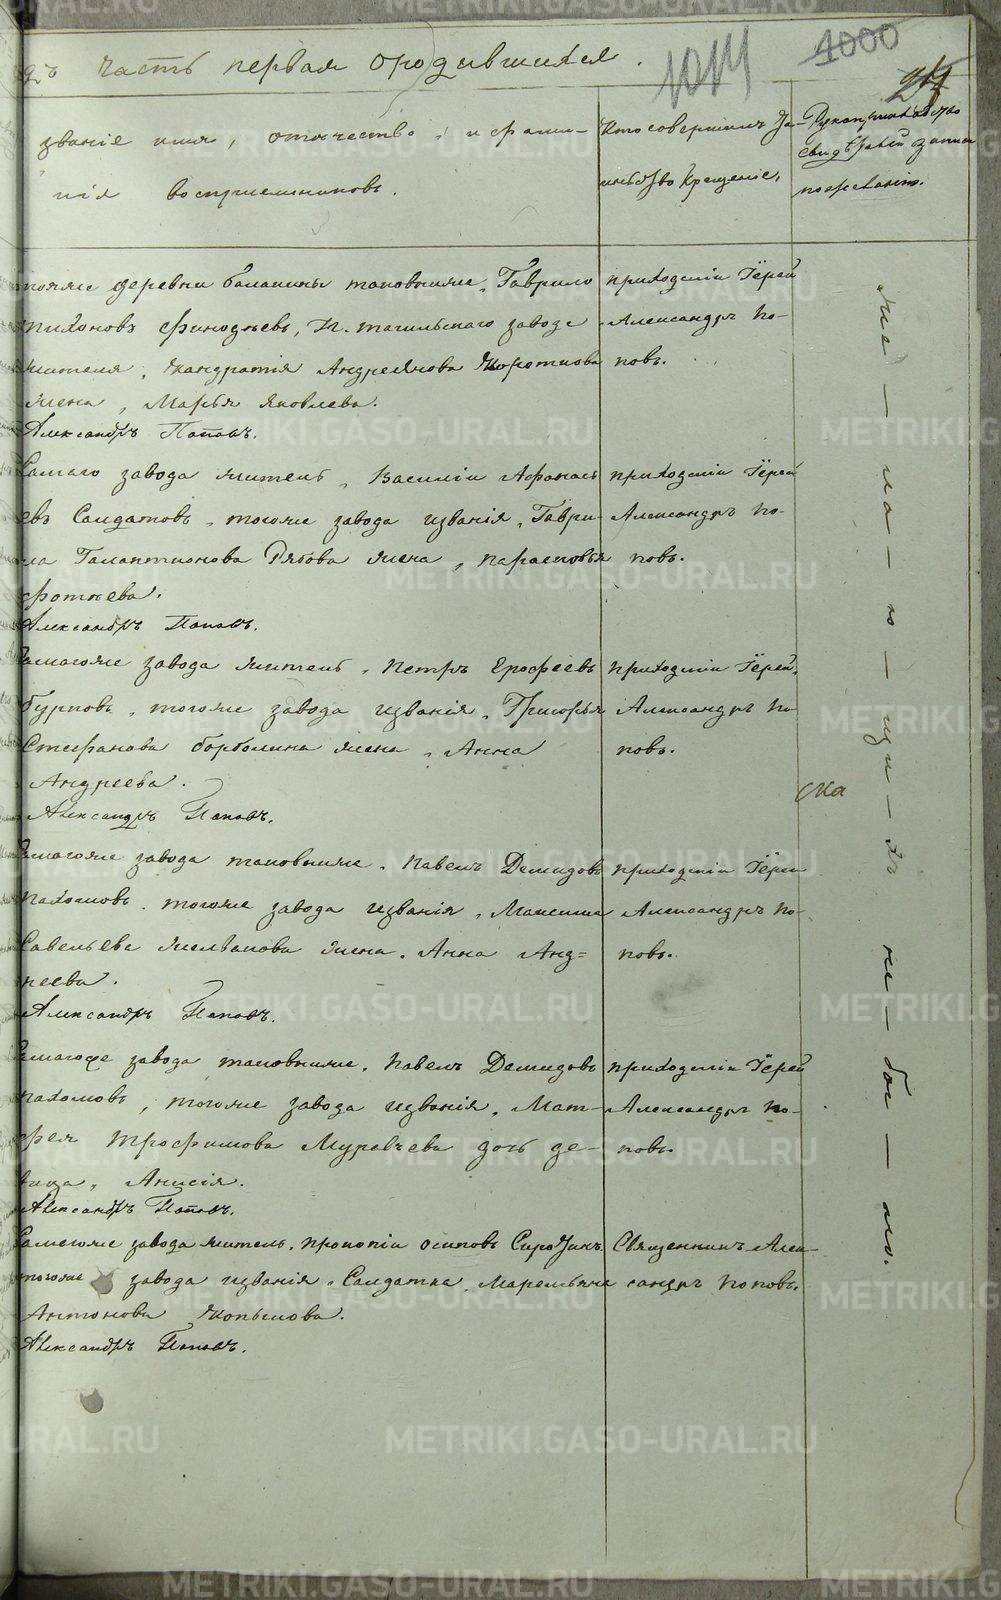 дъ часть первая о родившихся.
1014
1000
24
званіе имя, отчество, и фами-
лія воспріемниковъ.
Кто совершилъ Та-
инство крещеніе.
Рукоприкладство
свидѣтелей записи
по желанію.
тояже деревни Балакины таковыиже, Гаврило
Тихоновъ Финодѣевъ, Н. тагильскаго завода
жителя, Кандратія Андреянова Короткова
жена, Марья Яковлева.
Александръ Поповъ.
приходскій Іерей
Александръ По-
повъ.
Самаго завода житель, Василіи Афонась
евъ Солдатовъ, тогоже завода изванія, Гаври-
ла Галактионова Рябова жена, парасковья
фотѣева.
Александръ Поповъ.
приходскій Іерей
Александръ По-
повъ.
Самагоже завода житель, Петръ Ерофѣевъ
Бурковъ, тогоже завода изванія, Григорья
Стефанова Борболина жена, Анна
Андреева.
Александръ Поповъ.
приходскій Іерей
Александръ По
повъ.
Самагоже завода таковыиже, Павелъ Демидовъ
Пахомовъ, тогоже завода изванія, Максима
Савельева жена, Анна Анд=
реева.
Александръ Поповъ.
приходскій Іереи
Александръ По-
повъ.
Самагоже завода таковыиже, Павелъ Демидовъ
Пахомовъ, тогоже завода изванія, Мат-
фея Трофимова Муравьева дочь де-
вица, Анисія.
Александръ Поповъ.
приходскій Іерей
Александръ По-
повъ.
Самагоже завода житель, Прокопіи Осиповъ
тогоже завода изванія, Салдатка, Маремьяна
Антонова Копылова.
Александръ Поповъ.
Священникъ Алек-
сандръ Поповъ.
же — ла — ю — щи — хъ не — бы — ло.
ска
METRIKI.GASO-URAL.RU